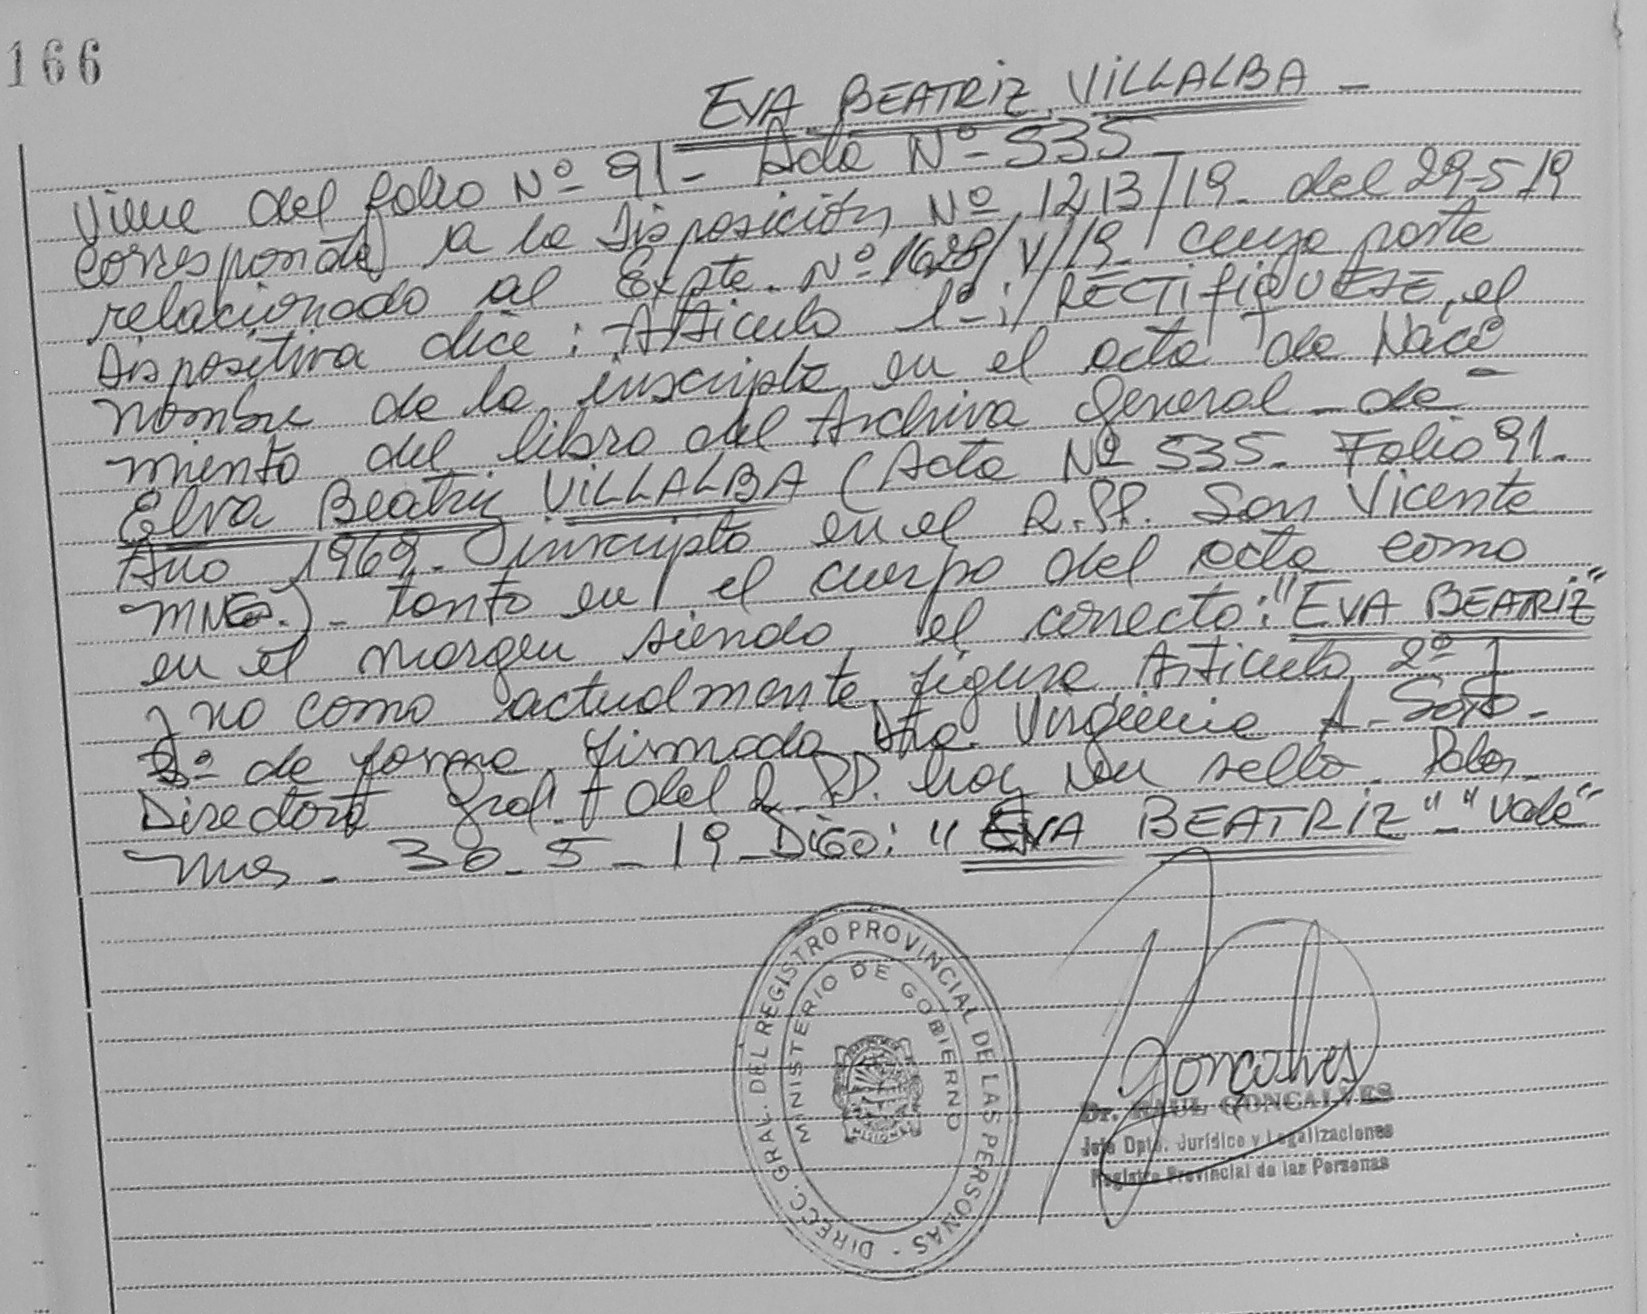 166
EVA BEATRIZ VILLALBA -
Viene del folio Nº 91 - Acta Nº 535
corresponde a la Disposición Nº 1213/19 - del 29-5-19
relacionado al Expte. Nº 1628/V/19 cuya parte
Dispositiva dice: Artículo 1º: RECTIFIQUESE, el
nombre de la inscripta en el acta de Naci-
miento del libro del Archivo General - de
Elva Beatriz VILLALBA (Acta Nº 535 - Folio 91 -
Año 1969 - inscripta en el R.PP. San Vicente
MNES.) - tanto en el cuerpo del acta como
en el margen siendo el correcto: "EVA BEATRIZ"
y no como actualmente figura Artículo 2º y
3º de forma. Firmado Dra. Virginia A. Soto -
Directora Gral. del R.PP. hay un sello. Pdas.
Mnes. - 30 - 5 - 19 - Digo: "EVA BEATRIZ" - "Vale"
DIRECC. GRAL. DEL REGISTRO PROVINCIAL DE LAS PERSONAS -
MINISTERIO DE GOBIERNO
MISIONES
Gonçalves
Dr. RAUL GONCALVES
Jefe Dpto. Jurídico y Legalizaciones
Registro Provincial de las Personas